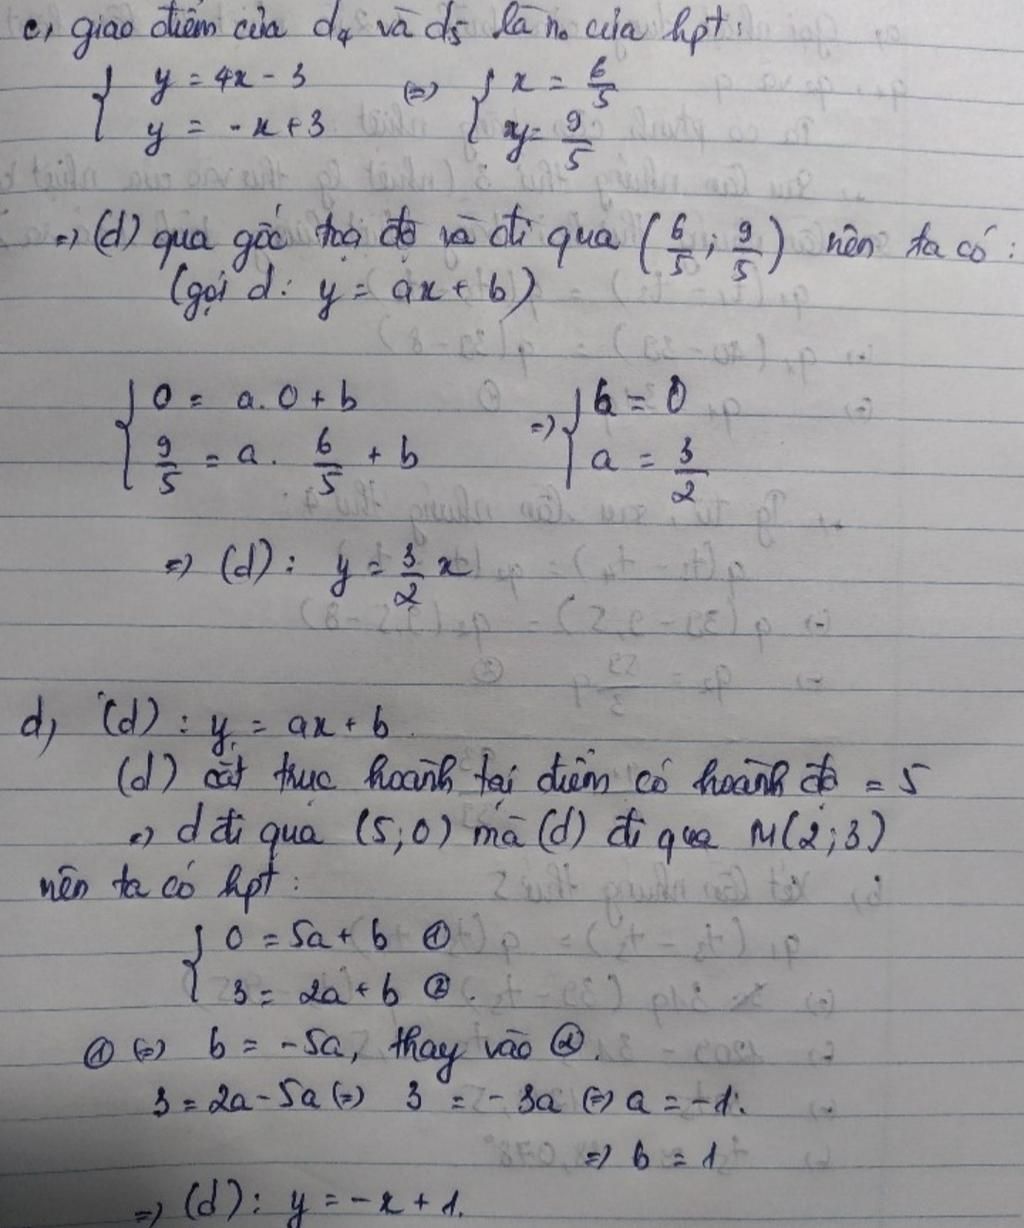 c, giao điểm của d4 và d5 là no của hpt:
{ y = 4x - 3 (=) { x = 6/5
{ y = -x + 3 { y = 9/5
=) (d) qua gốc toạ độ và đi qua (6/5; 9/5) nên ta có:
(gọi d: y = ax + b)
{ 0 = a.0 + b =) { b = 0
{ 9/5 = a. 6/5 + b { a = 3/2
=) (d): y = 3/2 x
d, (d): y = ax + b
(d) cắt trục hoành tại điểm có hoành độ = 5
=) d đi qua (5;0) mà (d) đi qua M(2;3)
nên ta có hpt:
{ 0 = 5a + b ①
{ 3 = 2a + b ②.
① (=) b = -5a, thay vào ②.
3 = 2a - 5a (=) 3 = -3a (=) a = -1.
=) b = 1
=) (d): y = -x + 1.